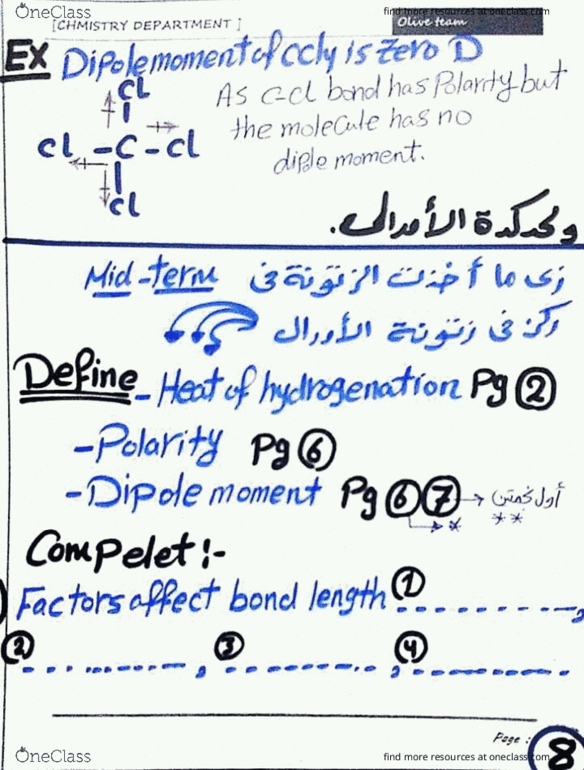 [CHMISTRY DEPARTMENT ]
find more resources at oneclass.com
Olive team
Ex Dipole moment of ccl4 is Zero D
As C-cl bond has Polarity but
the molecule has no
diple moment.
Cl
Cl - C - Cl
Cl
الأورال.
زى ما أخذت الزتونة فى Mid-term
ركز فى زتونة الأورال
Define - Heat of hydrogenation Pg ②
- Polarity Pg ⑥
- Dipole moment Pg ⑥ ⑦ → أول **
*
Compelet :-
Factors affect bond length ① ...........,
② ..........., ③ ..........., ④ ...........
Page :
8
OneClass
find more resources at oneclass.com